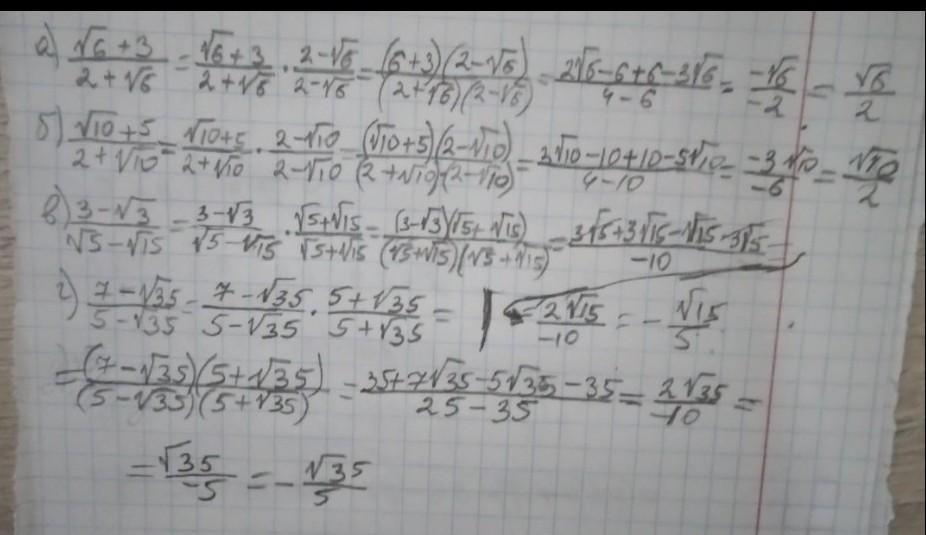 а) (√6 + 3)/(2 + √6) = (√6 + 3)/(2 + √6) · (2 - √6)/(2 - √6) = ((6 + 3)(2 - √6))/((2 + √6)(2 - √6)) = (2√6 - 6 + 6 - 3√6)/(4 - 6) = (-√6)/(-2) = √6/2
б) (√10 + 5)/(2 + √10) = (√10 + 5)/(2 + √10) · (2 - √10)/(2 - √10) = ((√10 + 5)(2 - √10))/((2 + √10)(2 - √10)) = (2√10 - 10 + 10 - 5√10)/(4 - 10) = (-3√10)/(-6) = √10/2
в) (3 - √3)/(√5 - √15) = (3 - √3)/(√5 - √15) · (√5 + √15)/(√5 + √15) = ((3 - √3)(√5 + √15))/((√5 + √15)(√5 + √15)) = (3√5 + 3√15 - √15 - 3√5)/(-10) =
= 2√15/(-10) = - √15/5
г) (7 - √35)/(5 - √35) = (7 - √35)/(5 - √35) · (5 + √35)/(5 + √35) =
= ((7 - √35)(5 + √35))/((5 - √35)(5 + √35)) = (35 + 7√35 - 5√35 - 35)/(25 - 35) = 2√35/(-10) =
= √35/(-5) = - √35/5